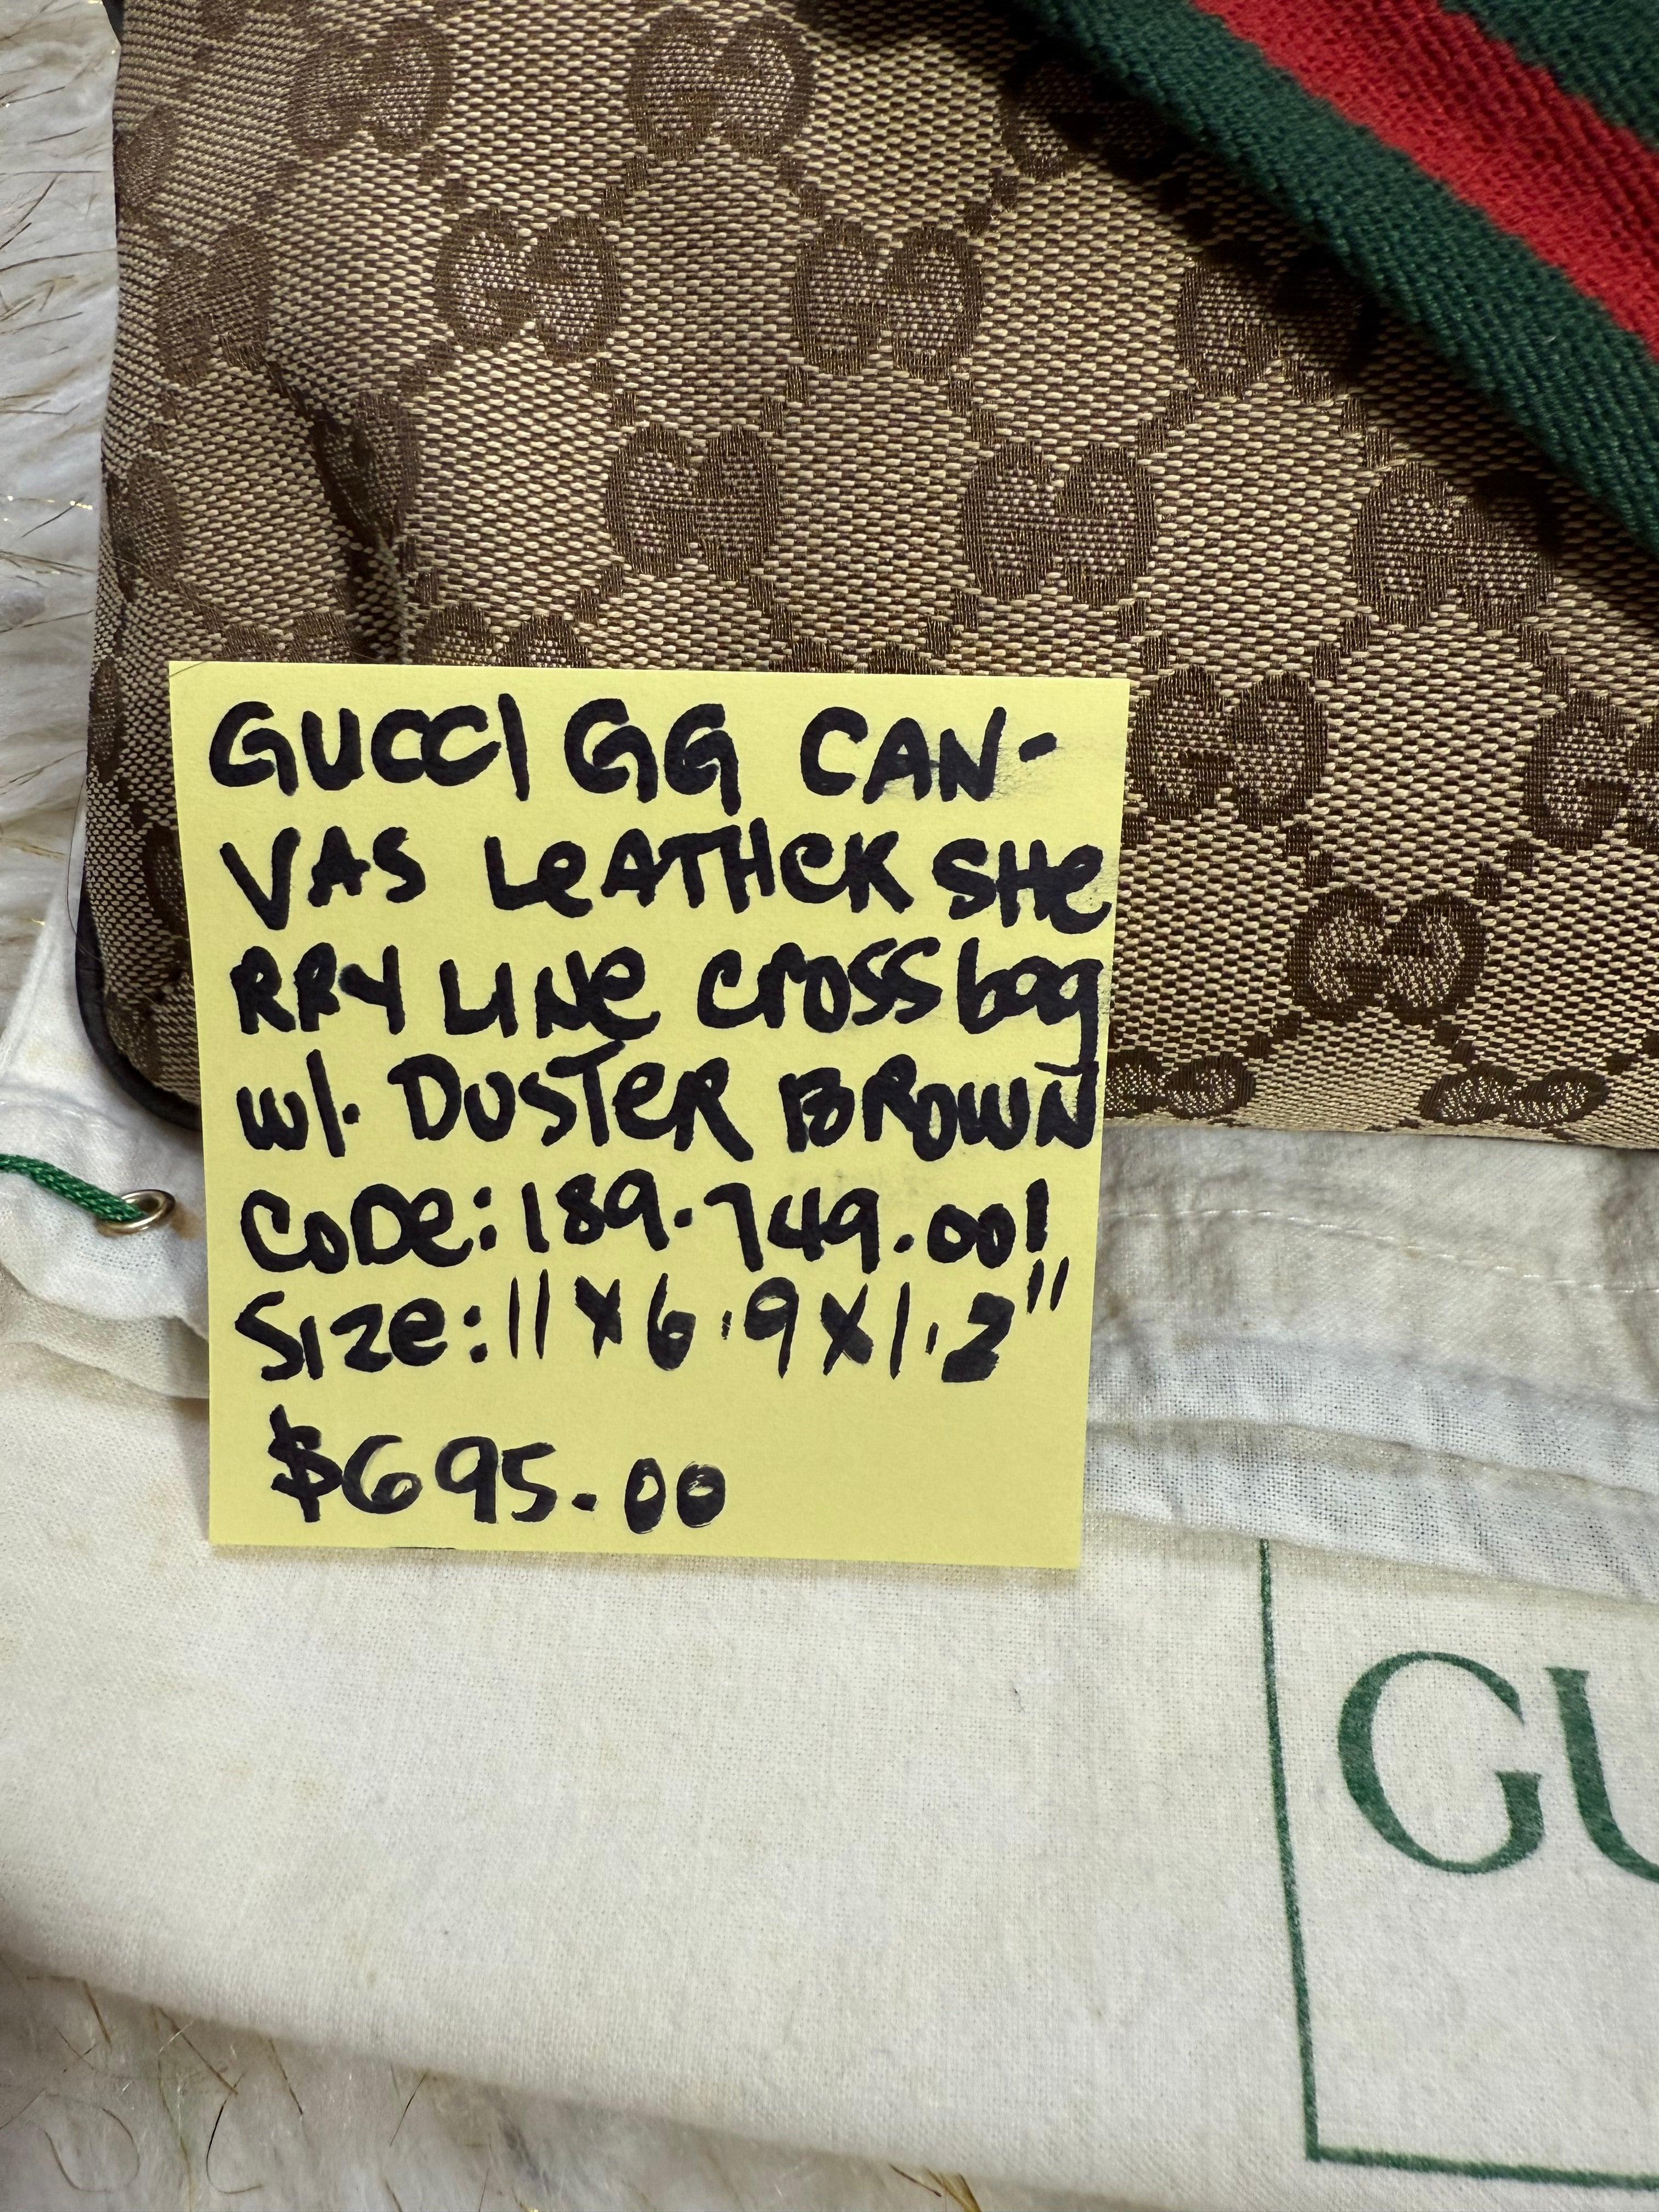 GUCCI GG CAN-
VAS LeATHeR SHe
RRY LINe crossbag
w/. DUSTeR BROWN
CODe: 189.749.001
SIZe: 11 X 6.9 X 1.2"
$695.00
GU